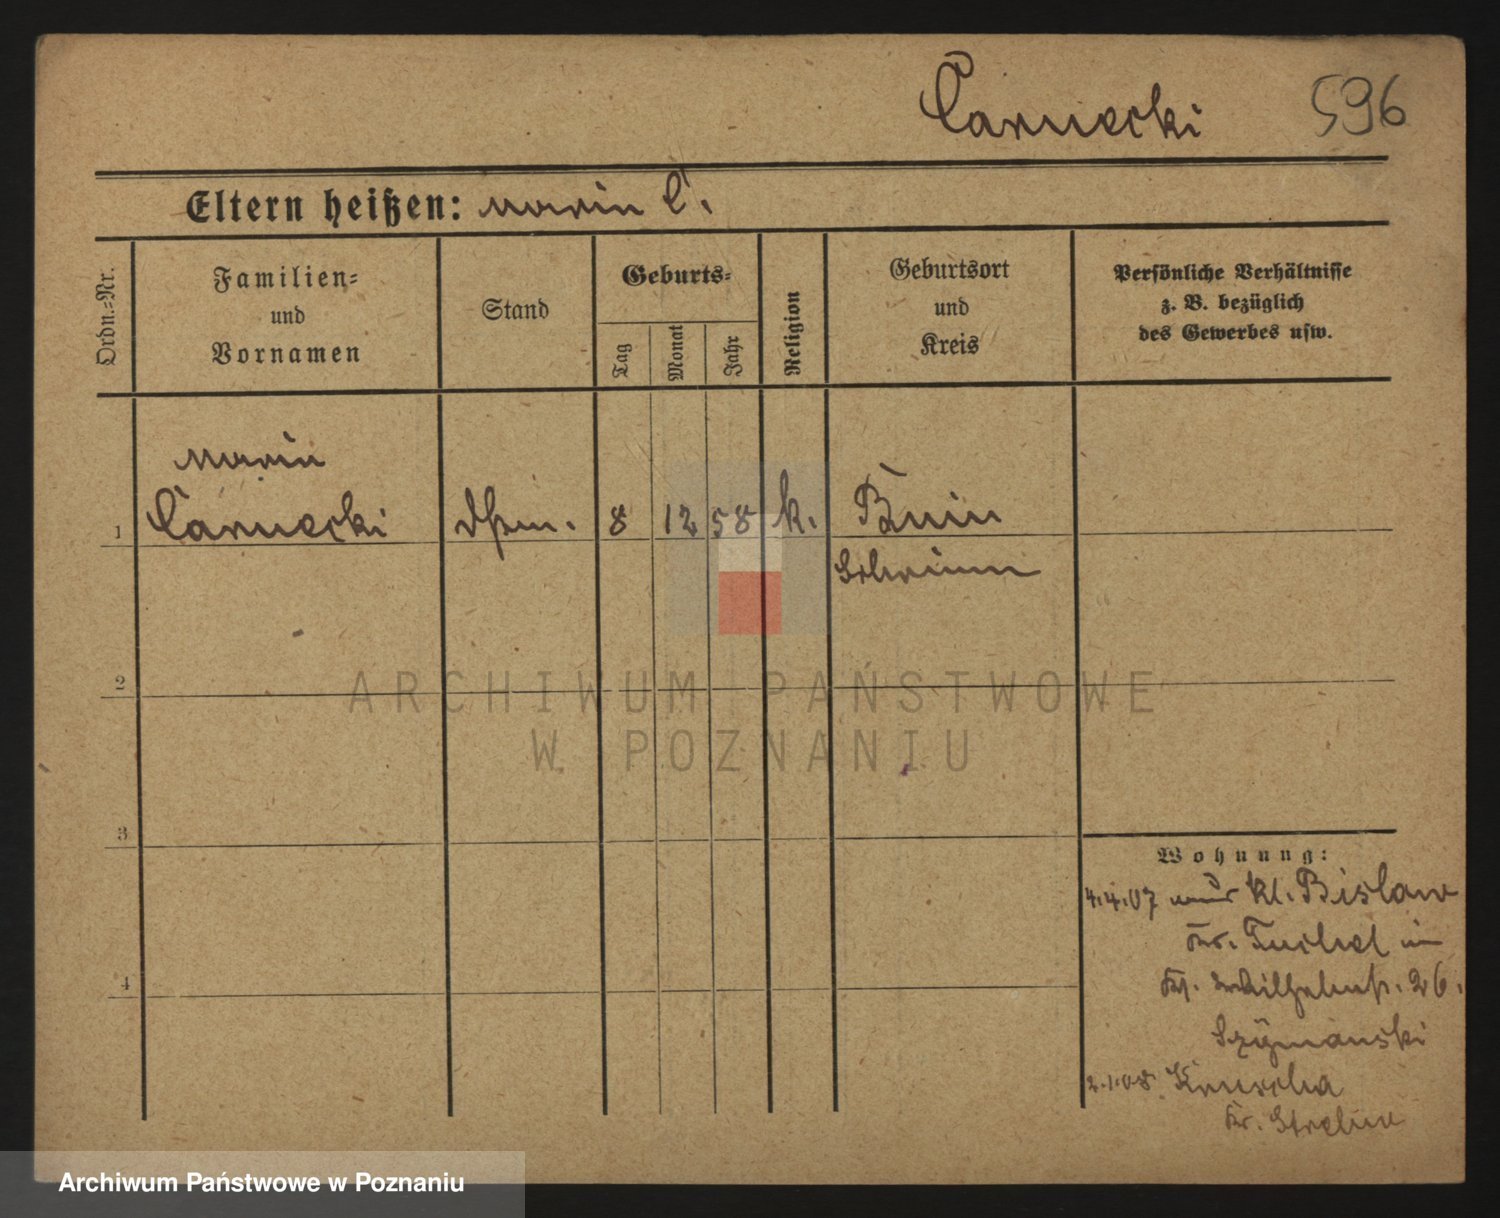 Czarnecki 596
Eltern heißen: Maria C.
Ordn.-Nr.
Familien-
und
Vornamen
Stand
Geburts-
Tag
Monat
Jahr
Religion
Geburtsort
und
Kreis
Persönliche Verhältnisse
z. B. bezüglich
des Gewerbes usw.
Maria
1 Czarnecki 8 12 58 k. Bnin
Schrimm
2
3
4
Wohnung:
4.4.07 Kl. Bislaw
Kr. Tuchel in
Wilhelmstr. 26.
Szymanski
2.1.08 Kruscha
Kr. Strelno
ARCHIWUM PAŃSTWOWE
W POZNANIU
Archiwum Państwowe w Poznaniu